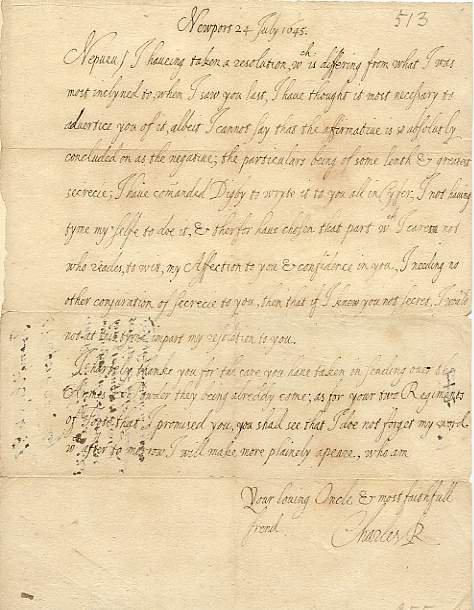 Newport 24 July 1645.
513
Nepueu / I haveing taken a resolution, wch is differing from what I was
most inclyned to, when I saw you last, I have thought it most necessary to
advertice you of it, albeit I cannot say that the affirmative is so absolutly
concluded on as the negative; the particulars being of some lenth & greatest
secrecie; I have comanded Digby to wryte it to you all in Cyfer, I not having
tyme my selfe to doe it, & therfor have chosen that part wch I care not
who reades, to wit, my Affection to you & confidence in you, I needing no
other conjuration of secrecie to you, then that if I knew you not secret, I would
not at this tyme impart my resolution to you.
I hartely thanke you for the care you have taken in sending
Armes Pouder they being alreddy come; as for your two Regiments
of Foote that I promised you, you shall see that I doe not forget my word
wch after to morrow, I will make more plainely apeare, who am
Your loving Oncle & most faithfull
frend
Charles R